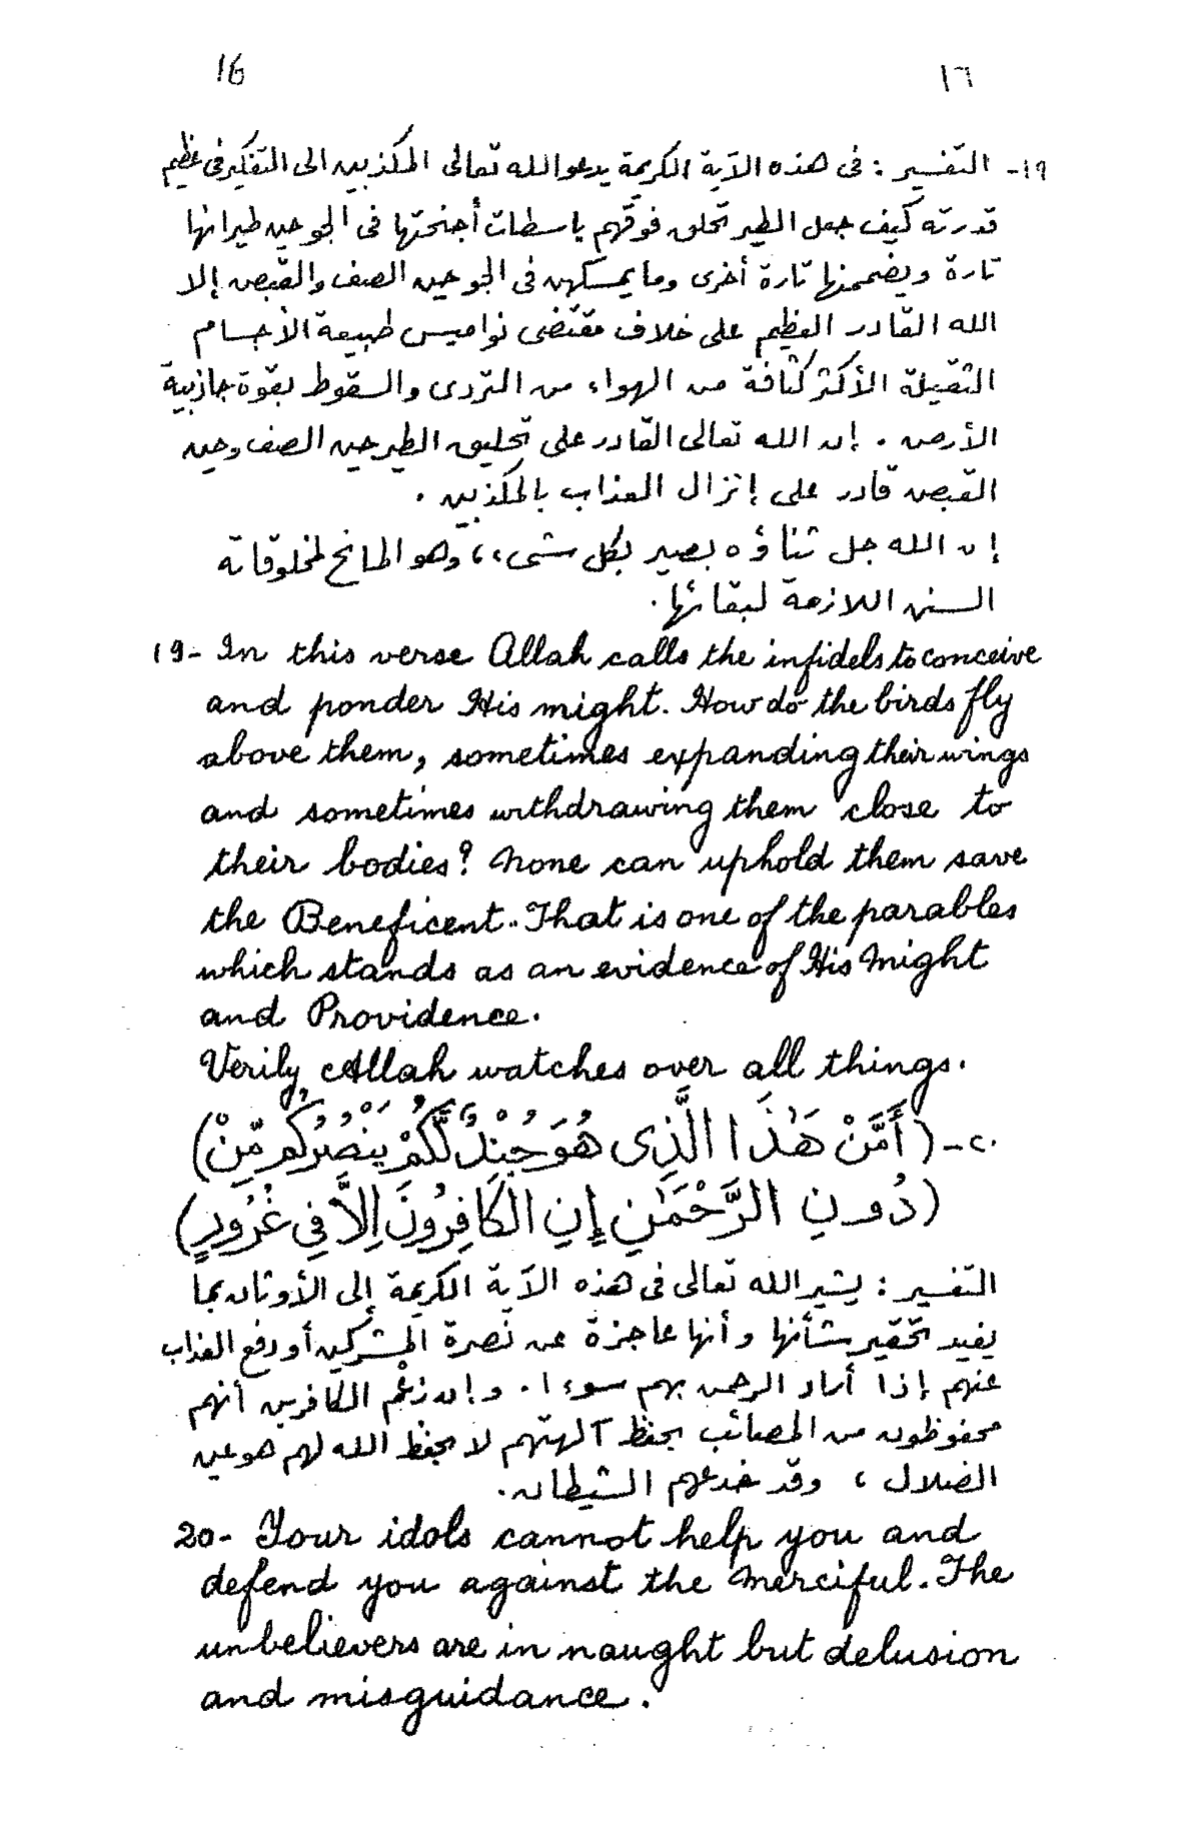 16
١٦
١٩- التفسير : فى هذه الآية الكريمة يدعو الله تعالى المكذبين الى التفكير فى عظيم
قدرته كيف جعل الطير تحلق فوقهم باسطات أجنحتها فى الجو حين طيرانها
تارة ويضممنها تارة أخرى وما يمسكهن فى الجو حين الصف والقبض إلا
الله القادر العظيم على خلاف مقتضى نواميس طبيعة الأجسام
الثقيلة الأكثر كثافة من الهواء من التردى والسقوط بقوة جاذبية
الأرض . إن الله تعالى القادر على تحليق الطير حين الصف وحين
القبض قادر على إنزال العذاب بالمكذبين .
إن الله جل ثناؤه بصير بكل شىء ، وهو المانح لمخلوقاته
السنن اللازمة لبقائها .
19- In this verse Allah calls the infidels to conceive
and ponder His might. How do the birds fly
above them, sometimes expanding their wings
and sometimes withdrawing them close to
their bodies? None can uphold them save
the Beneficent. That is one of the parables
which stands as an evidence of His Might
and Providence.
Verily, Allah watches over all things.
٢٠- (أَمَّنْ هَٰذَا الَّذِى هُوَ جُنْدٌ لَّكُمْ يَنْصُرُكُم مِّنْ)
(دُونِ الرَّحْمَٰنِ إِنِ الْكَافِرُونَ إِلَّا فِي غُرُورٍ)
التفسير : يشير الله تعالى فى هذه الآية الكريمة إلى الأوثان بما
يفيد تحقير شأنها وأنها عاجزة عن نصرة المشركين أو دفع العذاب
عنهم إذا أراد الرحمن بهم سوءا . وإن زعم الكافرين أنهم
محفوظون من المصائب بحفظ آلهتهم لا بحفظ الله لهم هو عين
الضلال ، وقد خدعهم الشيطان .
20- Your idols cannot help you and
defend you against the Merciful. The
unbelievers are in naught but delusion
and misguidance.